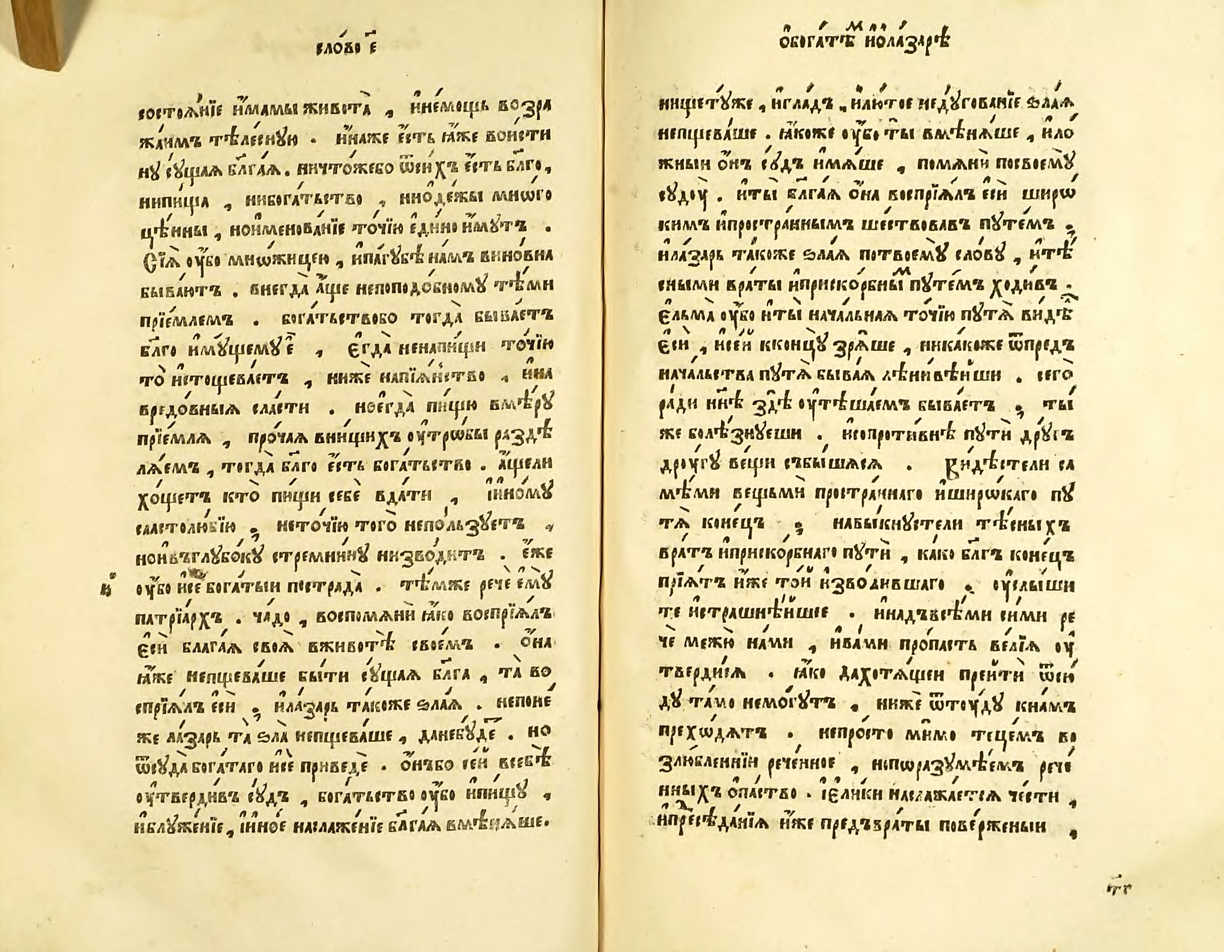 сло́во є҃
состоѧ́нїе и҆́мамы живота̀ , и҆не́мощь возра
жа́имъ тѣле́сную . и҆на́же є҆́сть ꙗ҆́же вои́сти
ну су́щаѧ бл҃га́ѧ . ничто́жебо ѿси́хъ є҆́сть бл҃го ,
нипи́ща , нибога́тьство , ниѻ҆де́жы мнѡ́го
цѣ́нны , нои҆менова́нїе то́чїю є҆ди́но и҆́мутъ .
Сїѧ̀ ѹ҆̀бо мно́жицею , и҆па́губѣ на́мъ вино́вна
быва́ютъ . внегда̀ а҆́ще неподо́бному тѣ́ми
прїе́млемъ . бога́тьствобо тогда̀ быва́етъ
бл҃го и҆му́щему є҆̀ , є҆гда̀ ненапи́щи то́чїю
то̀ и҆стощева́етъ , ниже́ напїѧ́нство , и҆на
вредо́вныѧ сла́сти . ноє҆гда̀ пи́щю вмѣ́ру
прїе́млѧ , про́чаѧ вни́щихъ ѹ҆трѡ́бы раздѣ
лѧ́емъ , тогда̀ бл҃го є҆́сть бога́тьство . а҆́щели
хо́щетъ кто̀ пи́щи себѐ вда́ти , и҆и҆но́му
сластолю́бїю , неточїю того̀ непо́льзуетъ ,
нои҆въглубо́ку стремни́ну низво́дитъ . є҆́же
ѹ҆̀бо и҆сѐ бога́тыи пострада̀ . тѣ́мже речѐ є҆мꙋ̀
патрїа́рхъ . ча́до , воспомѧнѝ ꙗ҆́ко воспрїѧ́лъ
є҆сѝ блага́ѧ своѧ̀ вживотѣ̀ свое́мъ . ѻ҆на̀
ꙗ҆́же непщева́ше бы́ти су́щаѧ бл҃га , та̀ во
спрїѧ́лъ є҆сѝ , и҆ла́зарь та́коже ѕла́ѧ . непоне
же ла́зарь та̀ ѕла̀ непщева́ше , данебу́де . но
ѿсу́да бога́таго и҆сѐ приведѐ . ѻ҆́нъбо се́й всебѣ̀
ѹ҆тверди́въ су́дъ , бога́тьство ѹ҆̀бо и҆пи́щу ,
и҆блуже́нїе , и҆и҆но́е наслаже́нїе бл҃га́ѧ вмѣнѧ́ше .
ѻ҆бога́тѣм и҆ѻ҆ла́зарѣ
нищету́же , и҆гла́дъ , и҆лю́тое неду́гованїе ѕла́ѧ
непщева́ше . ꙗ҆́коже ѹ҆̀бо ты̀ вмѣнѧ́ше , и҆ло
жныи ѻ҆́нъ су́дъ и҆мѧ́ше , помѧнѝ посвоемꙋ̀
су́доу . и҆ты̀ бл҃га́ѧ ѻ҆на̀ воспрїѧ́лъ є҆сѝ широ́
кимъ и҆простра́ннымъ ше́ствовавъ путе́мъ ,
и҆ла́зарь та́коже ѕла́ѧ потвоемꙋ̀ сло́ву , и҆тѣ́
сными враты̀ и҆приско́рбныⷨ путе́мъ ходи́въ .
є҆льма̀ ѹ҆̀бо и҆ты̀ нача́льнаѧ то́чїю путѧ̀ ви́дѣ
є҆сѝ , и҆се́й кконцу̀ зрѧ́ше , ника́коже ѿпредъ
нача́льства путѧ̀ быва́ѧ лѣни́вѣиши . сего̀
ра́ди нн҃ѣ здѣ̀ ѹ҆тѣша́емъ быва́етъ , ты́
же болѣ́знуеши . и҆сопроти́внѣ путѝ дру́гъ
дроу́гу ве́щи събы́шасѧ . Ви́дѣстели са
мѣ́ми вещьмѝ простра́ннаго и҆широ́каго пу
тѧ̀ коне́цъ , навы́кнустели тѣ́сныхъ
вра́тъ и҆приско́рбнаго путѝ , ка́ко бл҃гъ коне́цъ
прїѧ́тъ и҆́же то́й и҆зво́лившаго . ѹ҆слы́ши
те и҆страшнѣ́йшее . и҆надъвсѣ́ми си́ми ре
чѐ ме́жю на́ми , и҆ва́ми про́пасть ве́лїѧ ѹ҆
тверди́сѧ . ꙗ҆́ко дахотѧ́щеи прейтѝ ѿсю
ду та́мо немо́гутъ , ниже́ ѿтоу́ду кна́мъ
прехо́дѧтъ . непро́сто ми́мо тече́мъ во
злю́бленнїи рече́нное , норазумѣ́емъ рече́
нныхъ ѻ҆па́ство . і҆є҆ли́ки наслажа́етсѧ че́сти ,
и҆пресѣда́нїѧ и҆́же предъвра́ты пове́рженыи ,